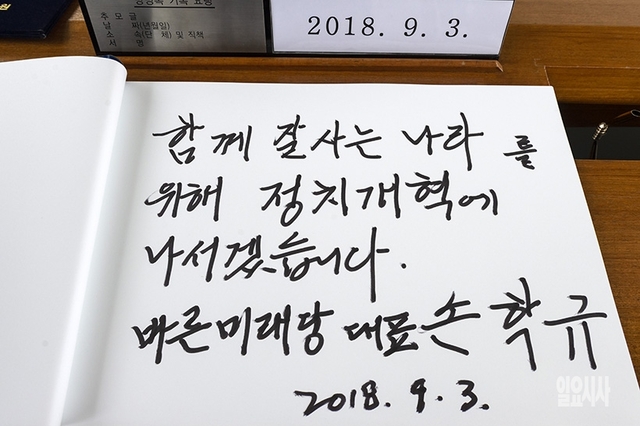 방명록 기록 요령
추 모 글
날 짜(년월일)
소 속(단 체) 및 직책
서 명
2018. 9. 3.
함께 잘사는 나라를
위해 정치개혁에
나서겠습니다.
바른미래당 대표 손학규
2018. 9. 3.
일요시사